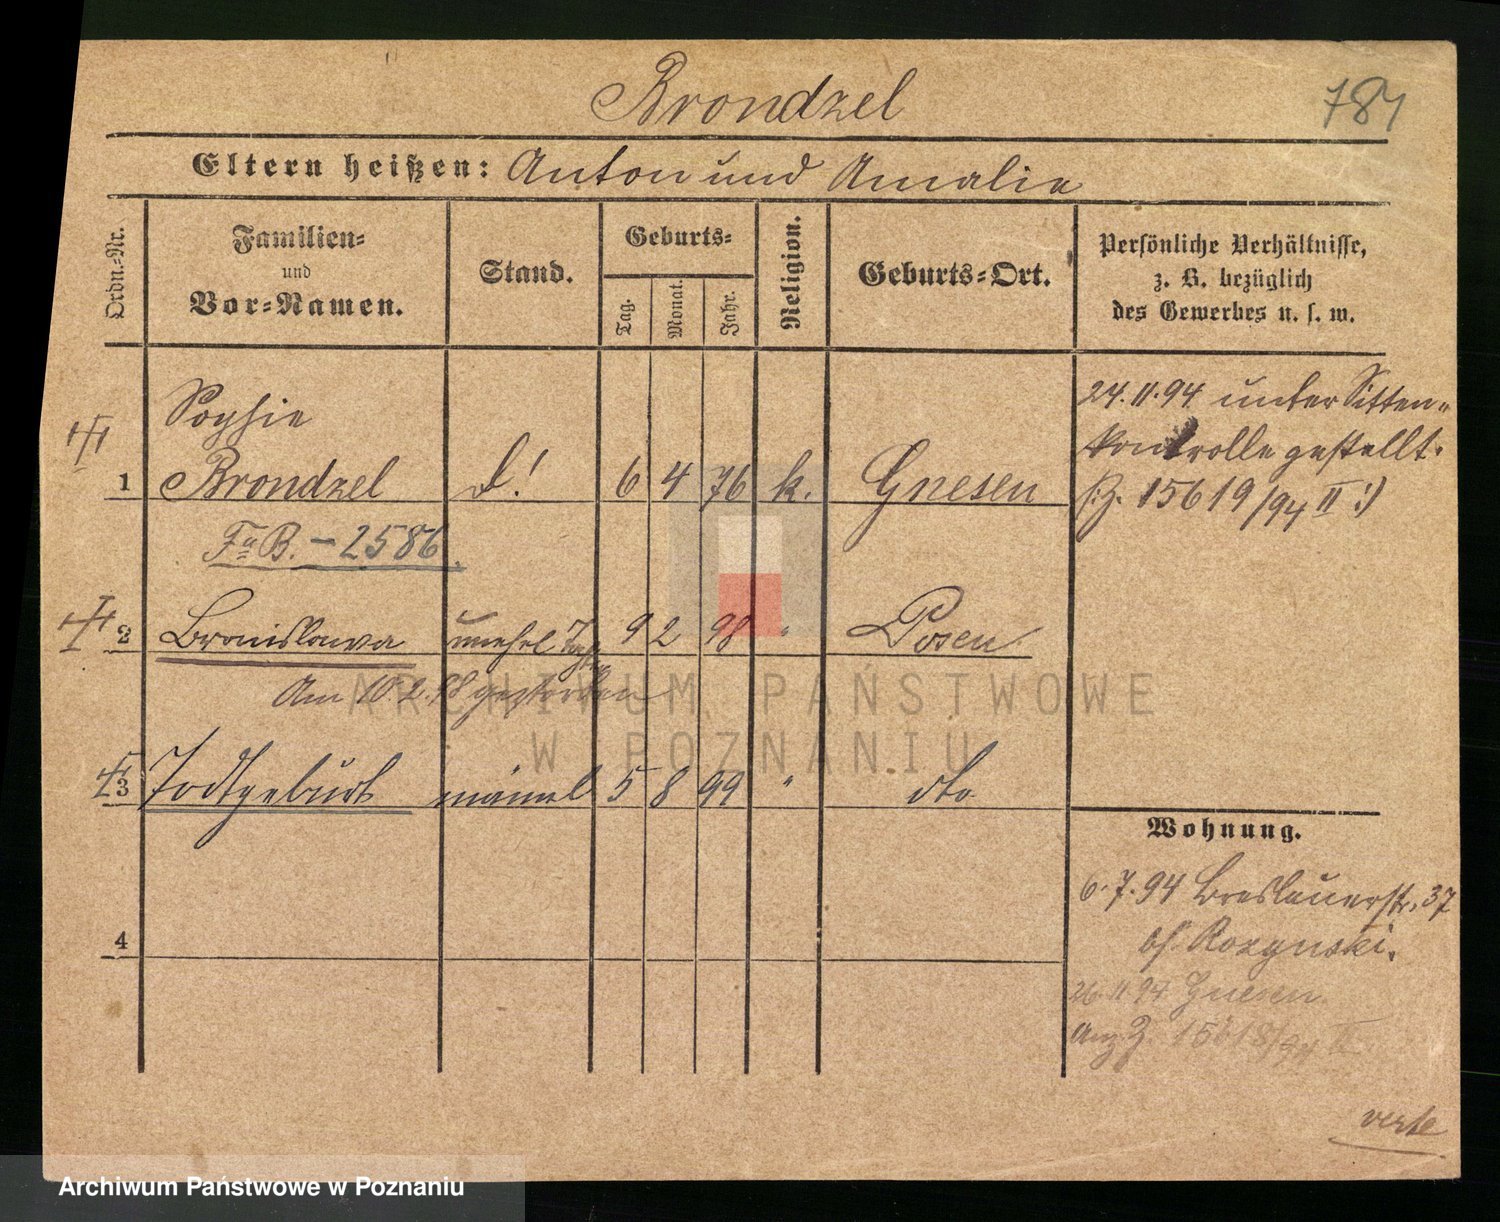 Brondzel
784
Eltern heißen: Anton und Amalie
Ordn.-Nr.
Familien-
und
Vor-Namen.
Stand.
Geburts-
Tag.
Monat.
Jahr.
Religion.
Geburts-Ort.
Persönliche Verhältnisse,
z. B. bezüglich
des Gewerbes u. s. w.
1 Sophie
Brondzel d! 6 4 76 k. Gnesen
24.11.94 unter Sitten-
kontrolle gestellt.
(:Z. 15619/94 II:)
Fa B. - 2586
2 Bronislawa unehel Tochter 9 2 98 " Posen
Am 10.2.98 gestorben
3 Todtgeburt männl 5 8 99 " dto
Wohnung.
6.7.94 Breslauerstr. 37
bf. Rozynski.
26.11.94 Gnesen
Anz. Z. 15618/94 II
4
verte
ARCHIWUM PAŃSTWOWE
W POZNANIU
Archiwum Państwowe w Poznaniu